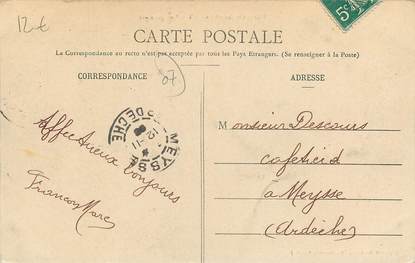 12€
CARTE POSTALE
La Correspondance au recto n'est pas acceptée par tous les Pays Etrangers. (Se renseigner à la Poste)
CORRESPONDANCE
ADRESSE
07
5c
MEYSSE
ARDÈCHE
Affectueux bonjours
François Marc
Monsieur Descours
cafetier
à Meysse
(Ardèche)